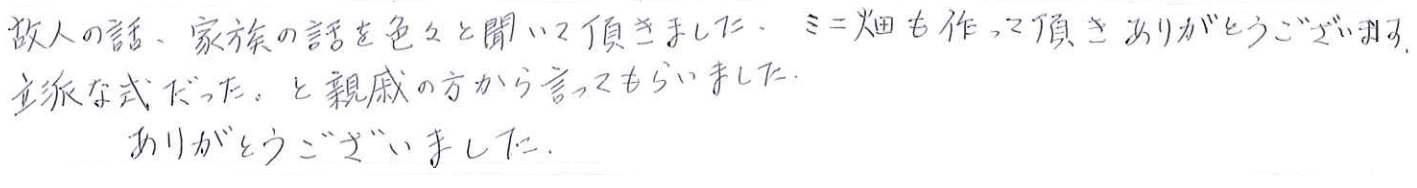 故人の話、家族の話を色々と聞いて頂きました. ミニ畑も作って頂きありがとうございます.
立派な式だった。と親戚の方から言ってもらいました.
ありがとうございました.